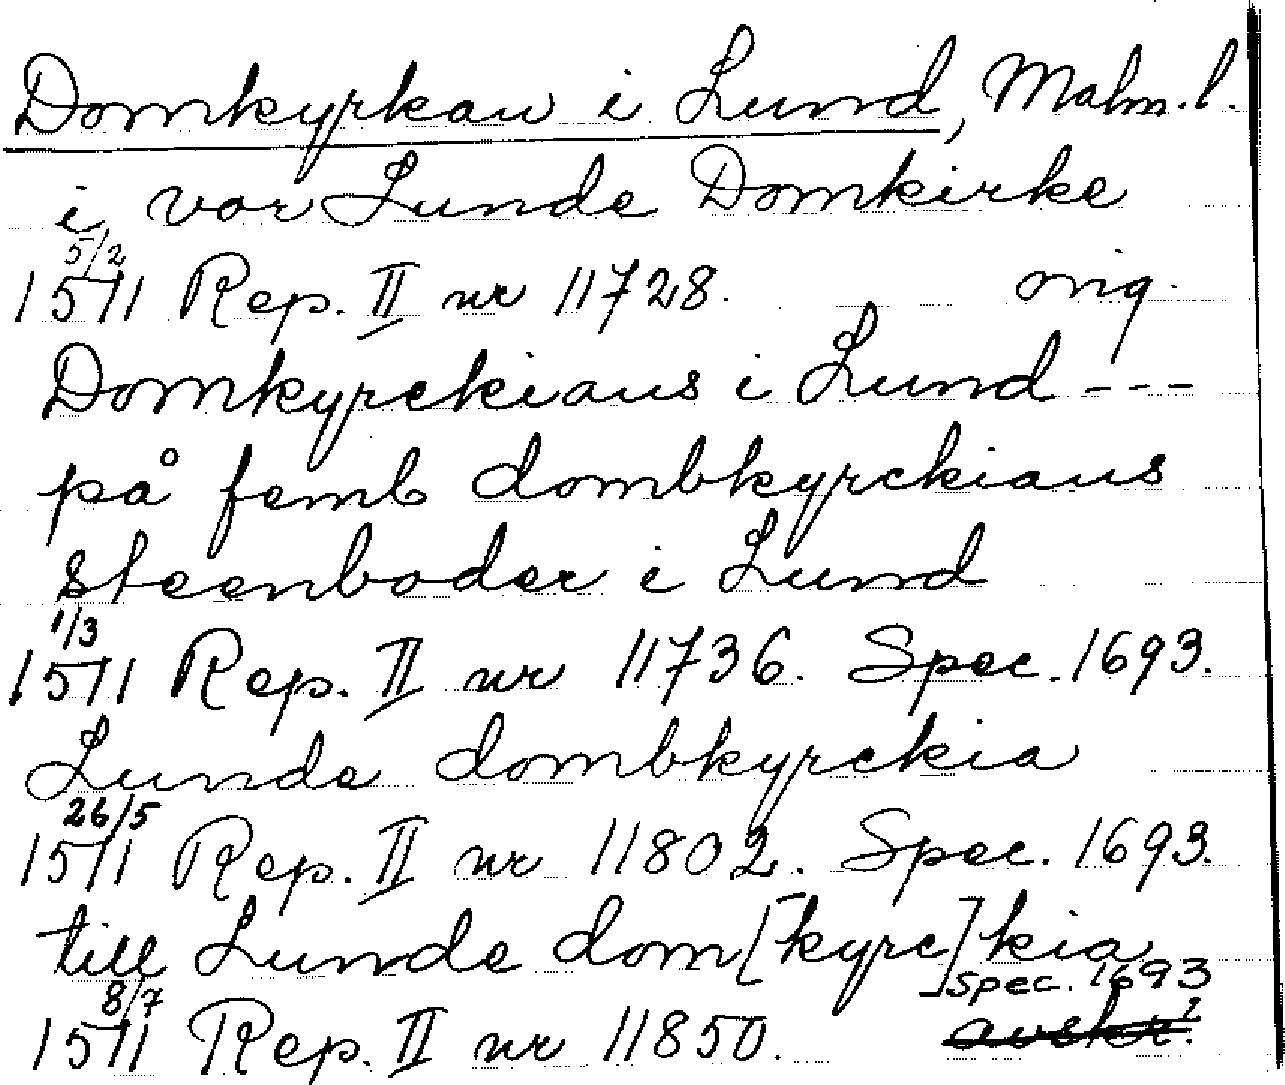 Domkyrkan i Lund, Malm.l.
i vor Lunde Domkirke
5/2
1511 Rep. II nr 11728. orig.
Domkyrckians i Lund ---
på femb dombkyrckians
steenboder i Lund
1/3
1511 Rep. II nr 11736. Spec. 1693.
Lunde dombkyrckia
26/5
1511 Rep. II nr 11802. Spec. 1693.
till Lunde dom[kyrc]kia
8/7 spec. 1693
1511 Rep. II nr 11850. avskr.?